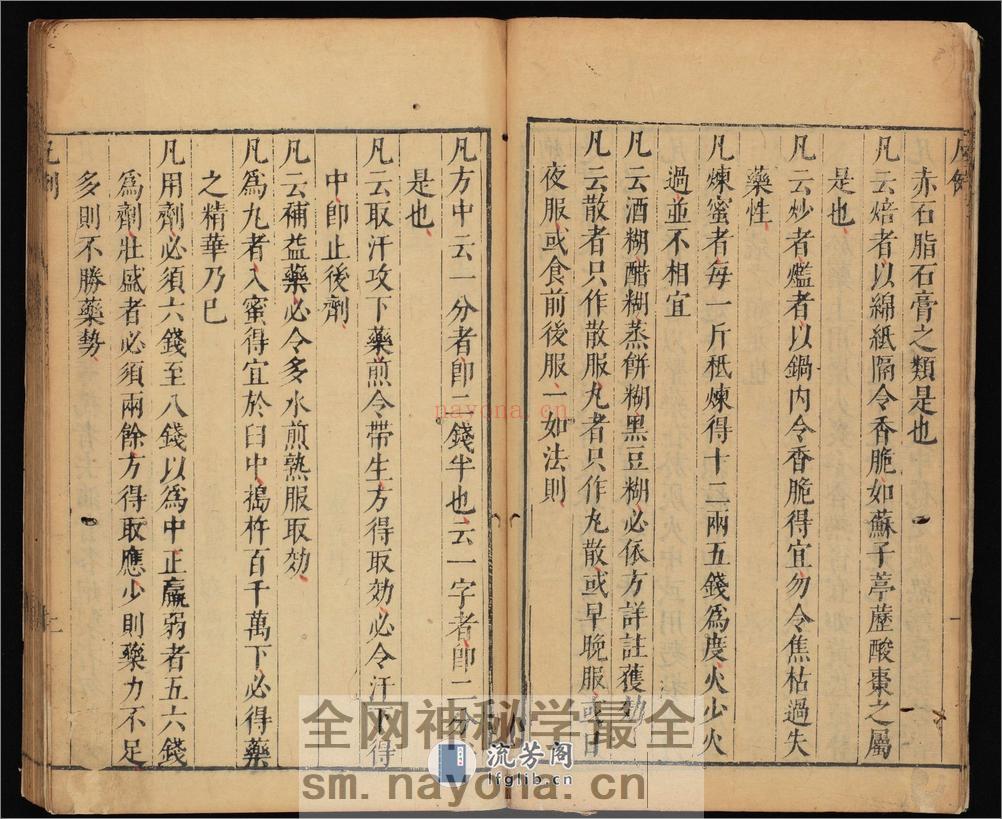 赤石脂石膏之類是也
凡云焙者以綿紙隔令香脆如蘇子葶藶酸棗之屬
是也
凡云炒者爁者以鍋內令香脆得宜勿令焦枯過失
藥性
凡煉蜜者每一斤秪煉得十二兩五錢爲度火少火
過並不相宜
凡云酒糊醋糊蒸餅糊黑豆糊必依方詳註獲効
凡云散者只作散服丸者只作丸散或早晚服或日
夜服或食前後服一如法則
凡方中云一分者卽二錢半也云一字者卽二分
是也
凡云取汗攻下藥煎令帶生方得取効必令汗下得
中卽止後劑
凡云補益藥必令多水煎熟服取効
凡爲丸者入蜜得宜於臼中搗杵百千萬下必得藥
之精華乃已
凡用劑必須六錢至八錢以爲中正羸弱者五六錢
爲劑壯盛者必須兩餘方得取應少則藥力不足
多則不勝藥勢
凡例
nayona.cn
全网神秘学最全
流芳阁
lfglib.cn
sm.nayona.cn